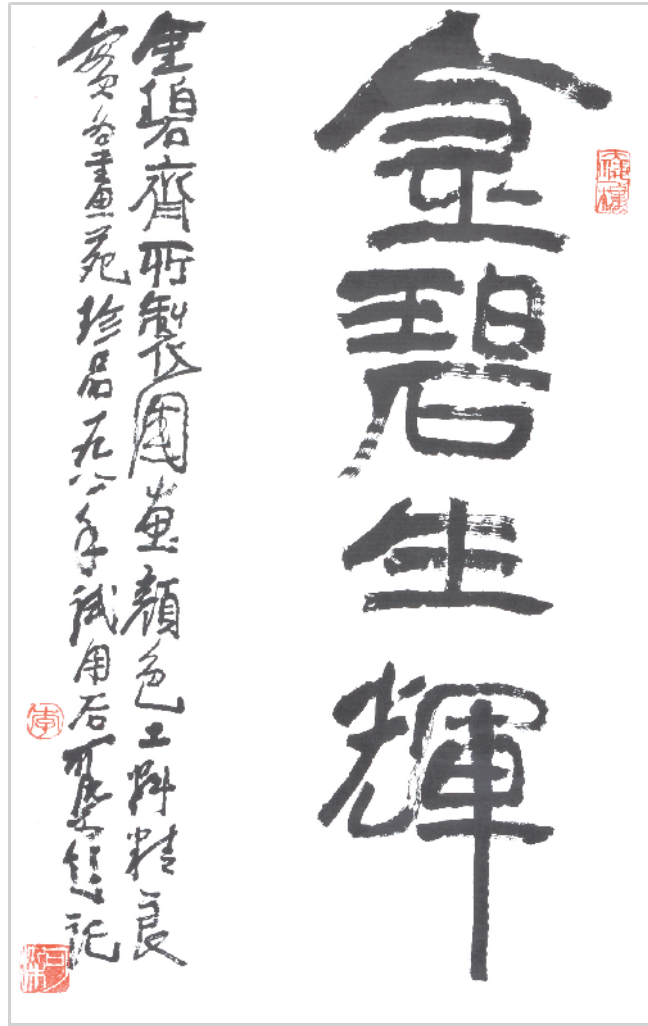 金碧生輝
金碧齊所製國畫顏色工料精良
實為畫苑珍品一九八年試用后可染題記
李
可染